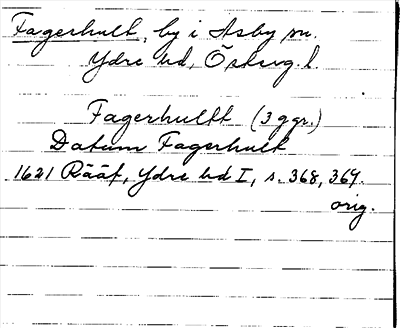 Fagerhult, by i Asby sn.
Ydre hd, Östergl.
Fagerhultt (3 ggr.)
Datum Fagerhult
1621 Rääf, Ydre hd I, s. 368, 369.
orig.